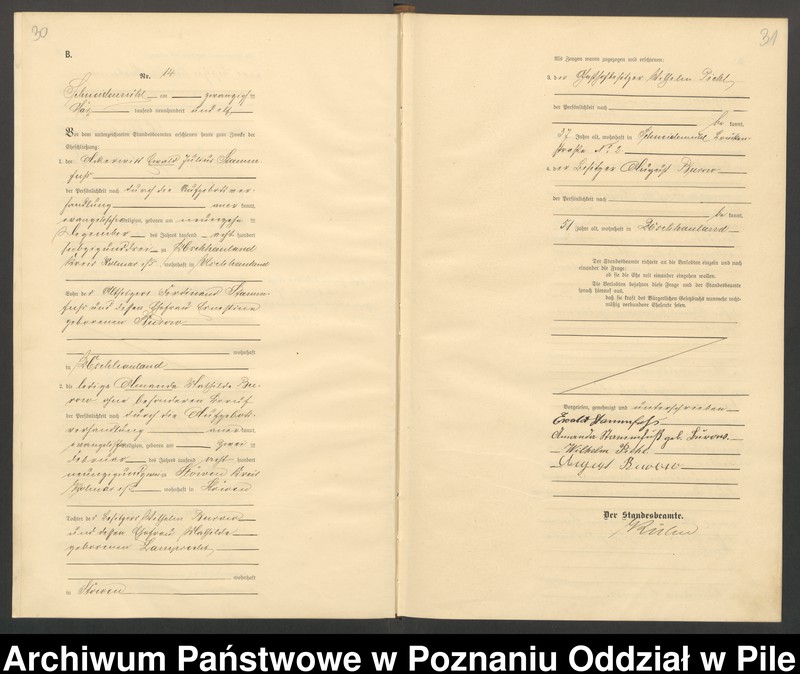 30
B.
Nr. 14
Schneidemühl am zwanzigsten
Mai tausend neunhundert und elf
Vor dem unterzeichneten Standesbeamten erschienen heute zum Zwecke der
Eheschließung:
1. der Ackerwirt Ewald Julius Stamm-
fuß
der Persönlichkeit nach durch die Aufgebotsver-
handlung aner kannt,
evangelischer Religion, geboren am neunzehn ten
des Jahres tausend acht hundert
zu
Kreis Kolmar i/P., wohnhaft in
Sohn des Altsitzers Ferdinand Stamm-
fuß und dessen Ehefrau Ernestine
geborenen
wohnhaft
in
2. die ledige Amanda Mathilde Bu-
row ohne besonderen Beruf
der Persönlichkeit nach durch die Aufgebots-
verhandlung aner kannt,
evangelischer Religion, geboren am zwei ten
Februar des Jahres tausend acht hundert
zu Stöwen Kreis
Kolmar i/P. wohnhaft in Stöwen
Tochter des Besitzers Wilhelm Burow
und dessen Ehefrau Mathilde
geborenen Lamprecht
wohnhaft
in Stöwen
31
Als Zeugen waren zugezogen und erschienen:
3. der Gasthofbesitzer Wilhelm
der Persönlichkeit nach
be kannt,
37 Jahre alt, wohnhaft in Schneidemühl Brücken-
straße No. 2
4. der Besitzer August Burow
der Persönlichkeit nach
be kannt,
51 Jahre alt, wohnhaft in
Der Standesbeamte richtete an die Verlobten einzeln und nach
einander die Frage:
ob sie die Ehe mit einander eingehen wollen.
Die Verlobten bejahten diese Frage und der Standesbeamte
sprach hierauf aus,
daß sie kraft des Bürgerlichen Gesetzbuchs nunmehr recht-
mäßig verbundene Eheleute seien.
Vorgelesen, genehmigt und unterschrieben
Ewald Stammfuß
Amanda Stammfuß geb. Burow
Wilhelm
August Burow
Der Standesbeamte.
Archiwum Państwowe w Poznaniu Oddział w Pile